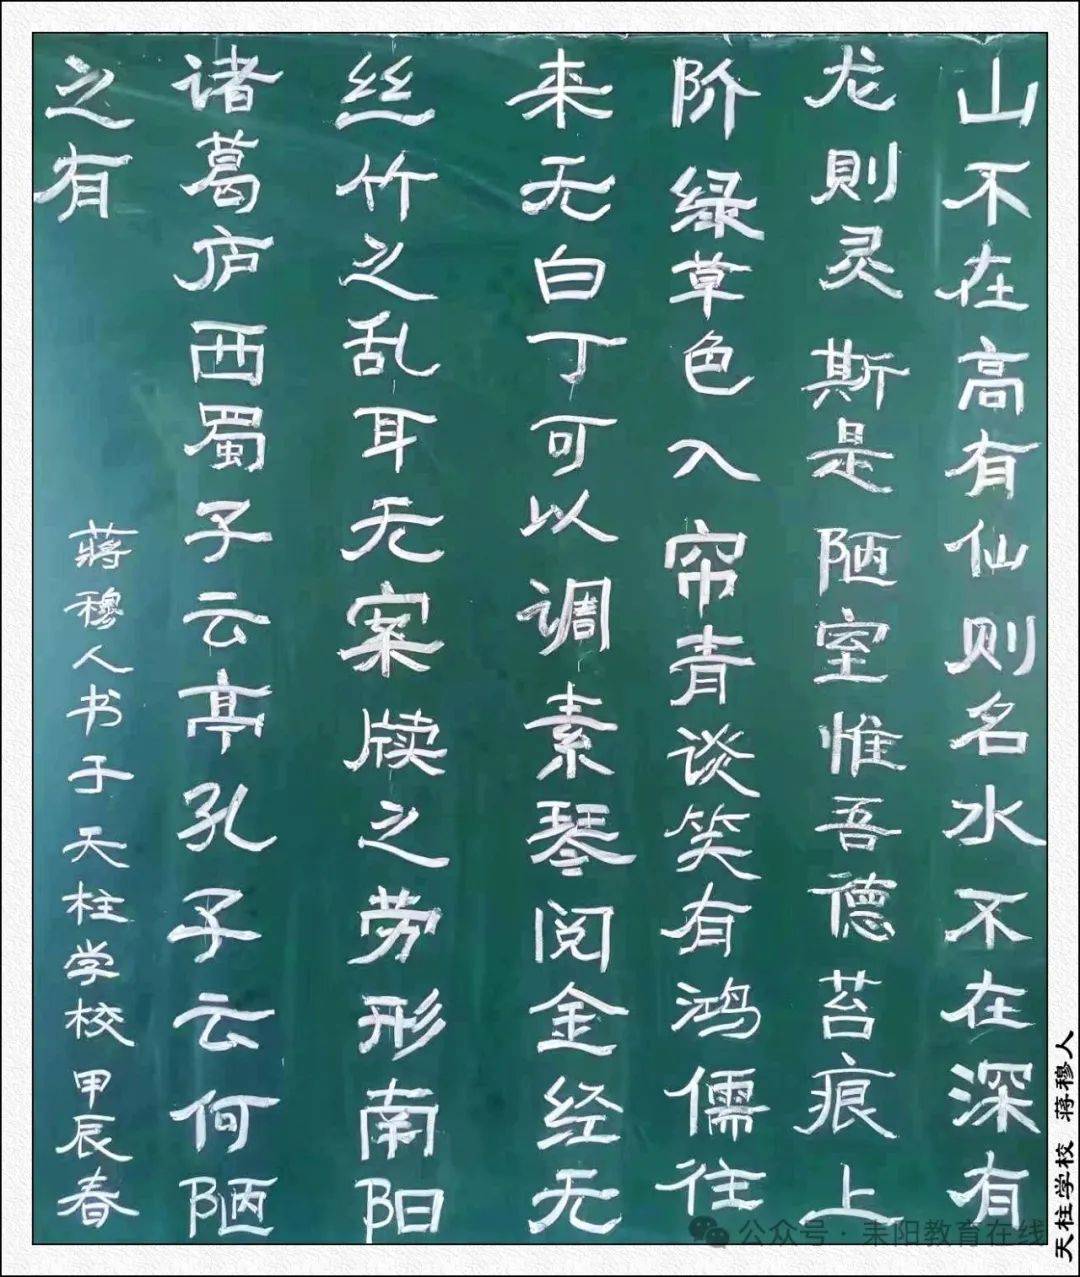 山不在高有仙则名水不在深有
龙則灵斯是陋室惟吾德苔痕上
阶绿草色入帘青谈笑有鸿儒往
来无白丁可以调素琴阅金经无
丝竹之乱耳无案牍之劳形南阳
诸葛庐西蜀子云亭孔子云何陋
之有
蒋穆人书于天柱学校甲辰春
天柱学校 蒋穆人
公众号·耒阳教育在线